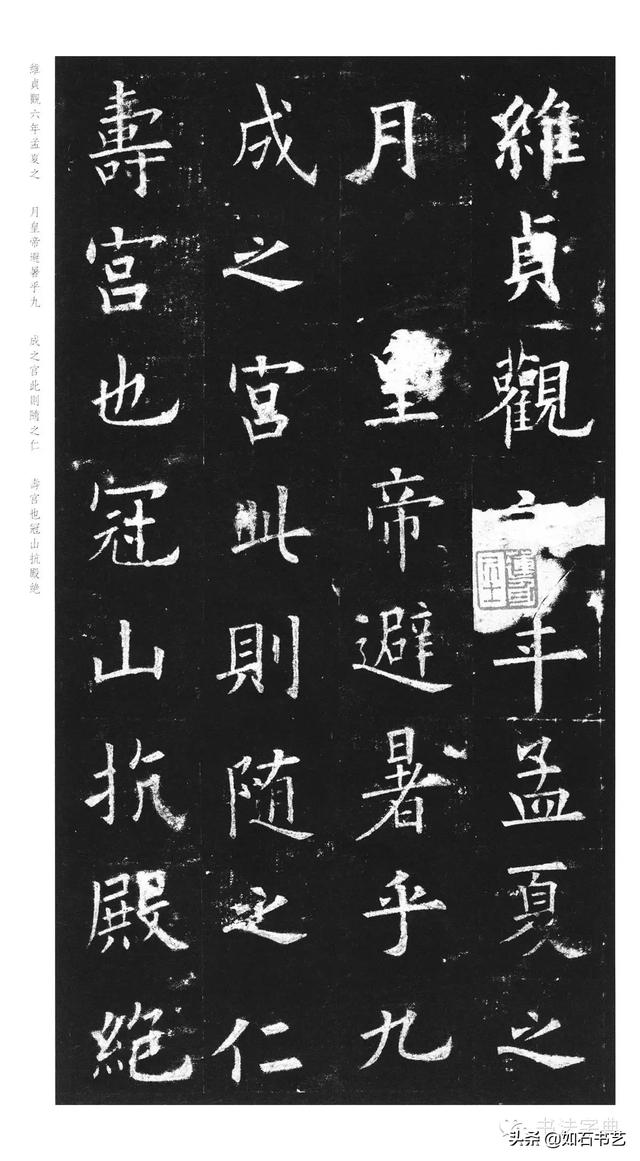 維貞觀六年孟夏之
月皇帝避暑乎九
成之宮此則随之仁
壽宮也冠山抗殿絕
維貞觀六年孟夏之 月皇帝避暑乎九 成之宮此則隨之仁 壽宮也冠山抗殿絕
书法字典
头条 @如石书艺